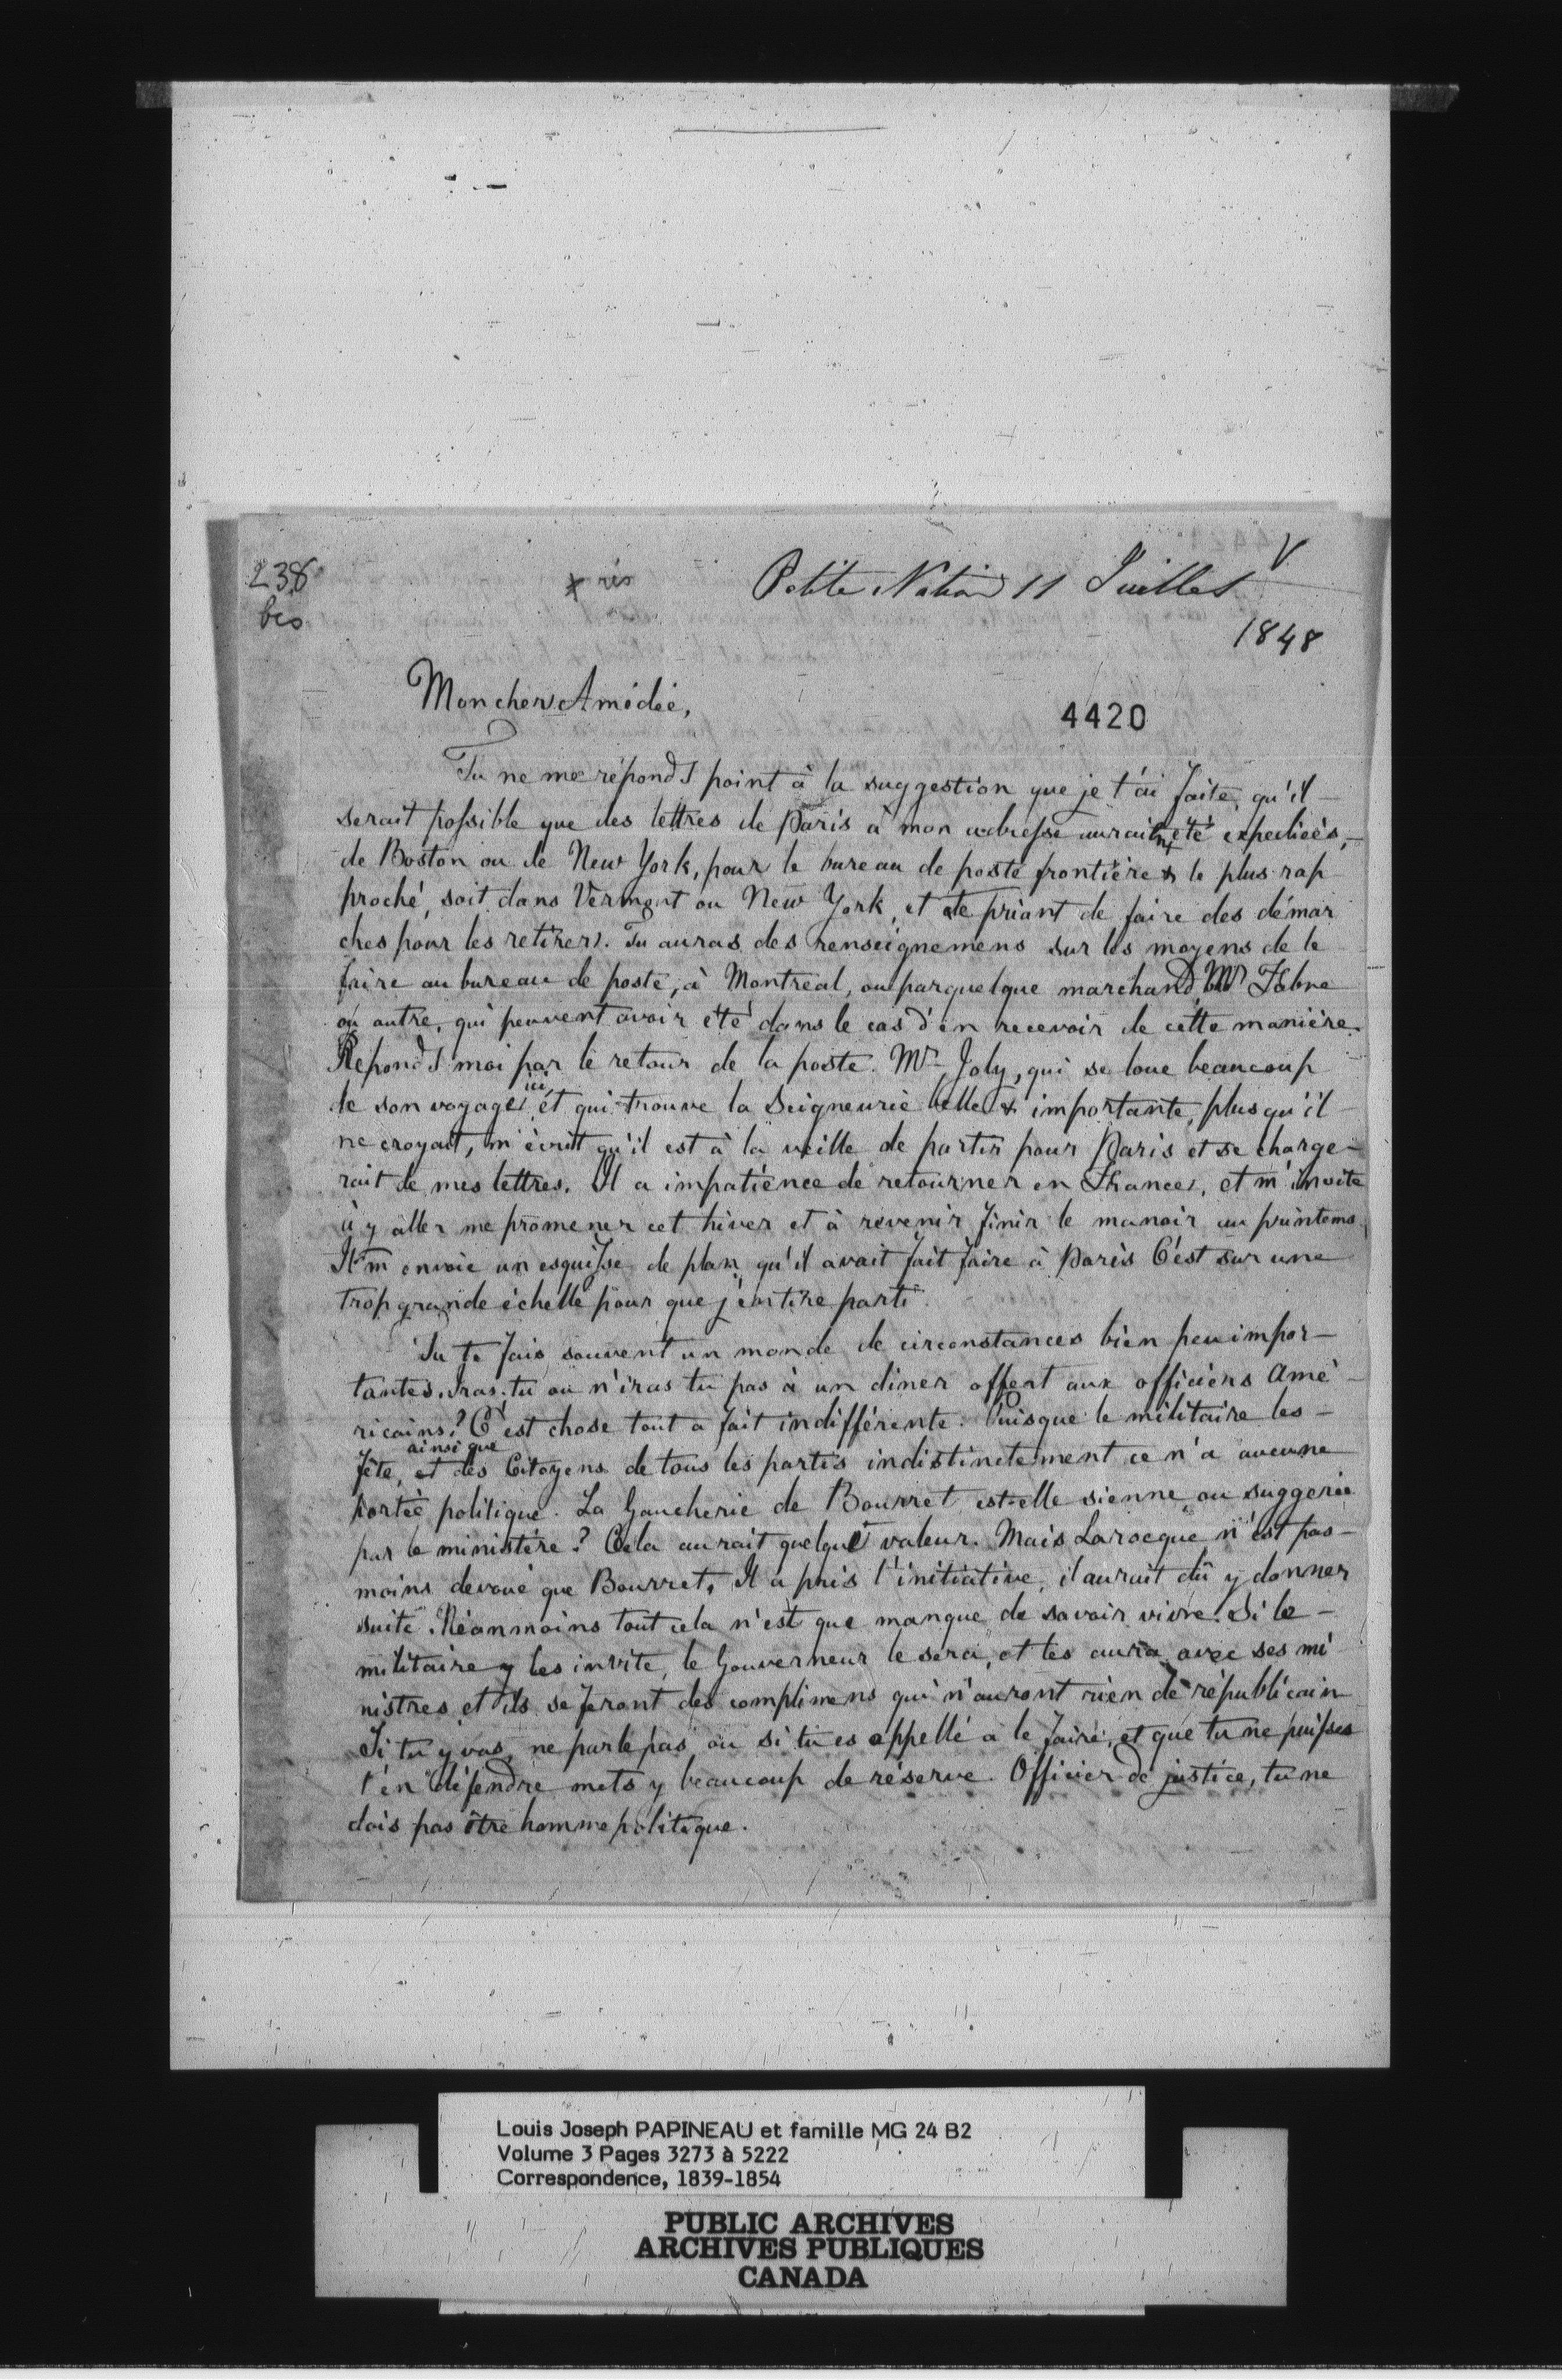 238
bis
Petite Nation 11 Juillet
1848
Mon cher Amédée,
4420
Tu ne me réponds point à la suggestion que je t'ai faite, qu'il
serait possible que des lettres de Paris à mon adresse auraient été expediées,
de Boston ou de New York, pour le bureau de poste frontière & le plus rap
proché, soit dans Vermont ou New York, et te priant de faire des démar
ches pour les retirer. Tu auras des renseignemens sur les moyens de le
faire au bureau de poste, à Montreal, ou par quelque marchand, Mr Fabre
ou autre, qui peuvent avoir été dans le cas d'en recevoir de cette manière.
Reponds moi par le retour de la poste. Mr Joly, qui se loue beaucoup
de son voyage ici, et qui trouve la Seigneurie belle & importante, plus qu'il
ne croyait, m'écrit qu'il est à la veille de partir pour Paris et se charge-
rait de mes lettres. Il a impatience de retourner en France, et m'invite
à y aller me promener cet hiver et à revenir finir le manoir au printems.
Il m'envoie un esquisse de plan qu'il avait fait faire à Paris C'est sur une
trop grande échelle pour que j'en tire parti.
Tu te fais souvent un monde de circonstances bien peu impor-
tantes. Iras-tu ou n'iras tu pas à un diner offert aux officiers Amé-
ricains? C'est chose tout a fait indifférente. Puisque le militaire les-
fête, ainsi que et des Citoyens de tous les partis indistinctement ce n'a aucune
portée politique. La Gaucherie de Bourret est-elle sienne, ou suggerée
par le ministère? Cela aurait quelque valeur. Mais Larocque n'est pas-
moins devoué que Bourret. Il a pris l'initiative, il aurait dû y donner
suite. Néanmoins tout cela n'est que manque de savoir vivre. Si le-
militaire y les invite, le Gouverneur le sera, et les aura avec ses mi
nistres et ils se feront des complimens qui n'auront rien de républicain
Si tu y vas, ne parle pas ou si tu es appellé a le faire, et que tu ne puisses
t'en défendre mets y beaucoup de réserve. Officier de justice, tu ne
dois pas être homme politique.
Louis Joseph PAPINEAU et famille MG 24 B2
Volume 3 Pages 3273 à 5222
Correspondence, 1839-1854
PUBLIC ARCHIVES
ARCHIVES PUBLIQUES
CANADA